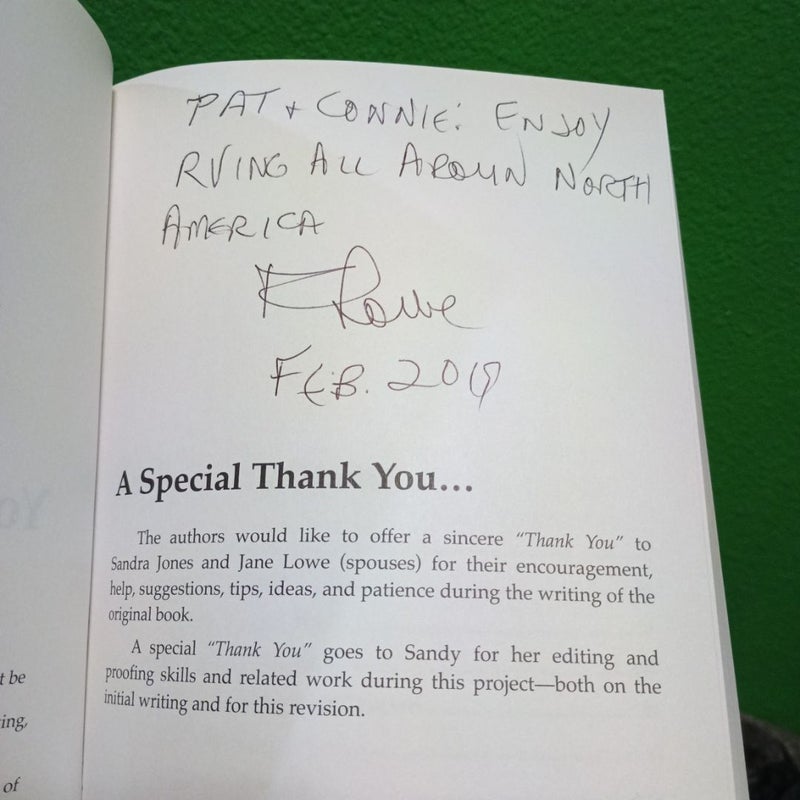 PAT + CONNIE: ENJOY
RVING ALL AROUN NORTH
AMERICA
Lowe
FEB. 2019
A Special Thank You...
The authors would like to offer a sincere "Thank You" to
Sandra Jones and Jane Lowe (spouses) for their encouragement,
help, suggestions, tips, ideas, and patience during the writing of the
original book.
A special "Thank You" goes to Sandy for her editing and
proofing skills and related work during this project—both on the
initial writing and for this revision.
t be
ing,
of